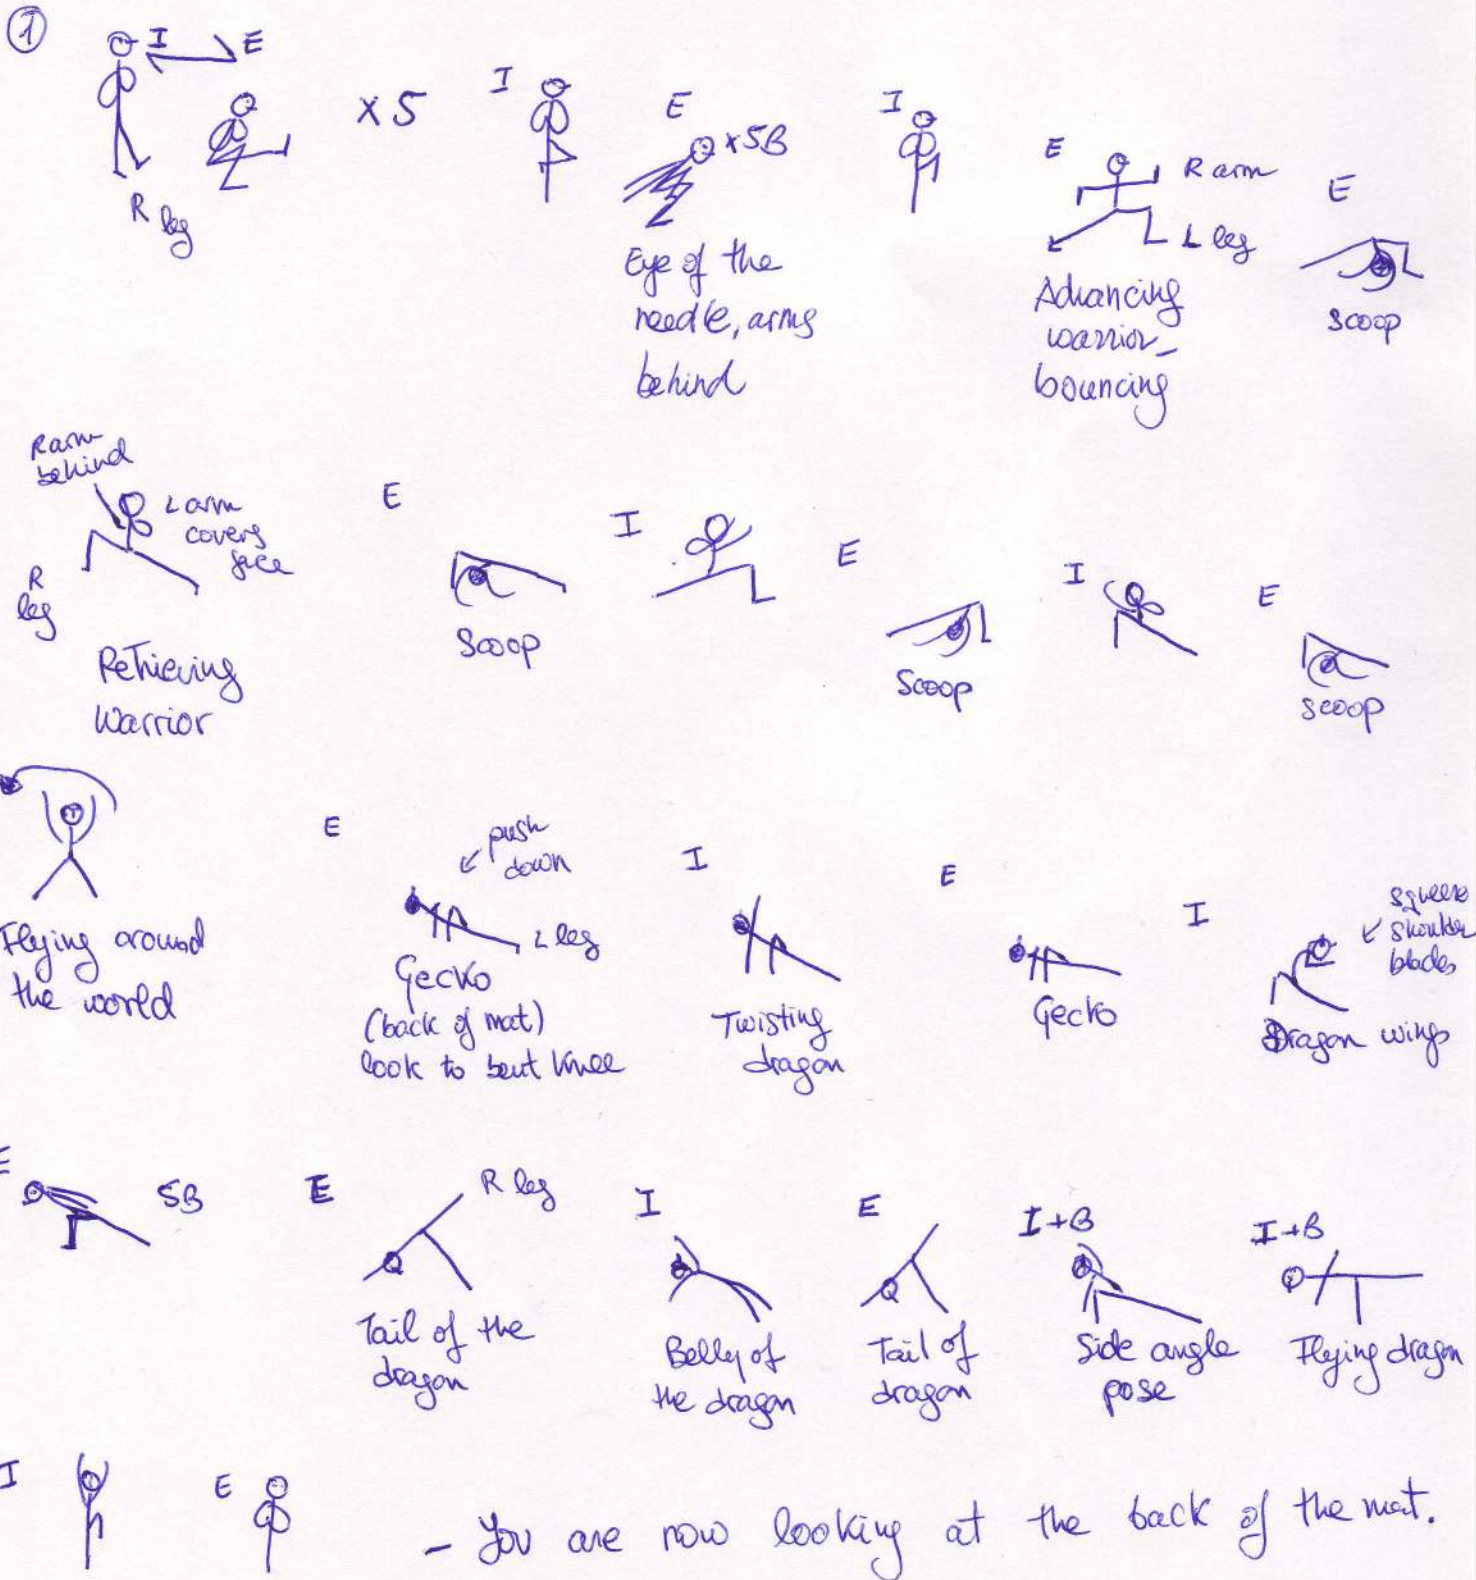 1
I E
x 5
R leg
I
E
x 5B
Eye of the
needle, arms
behind
I
E
R arm
L leg
Advancing
warrior -
bouncing
E
scoop
R arm
behind
L arm
covers
face
R
leg
Retrieving
Warrior
E
Scoop
I
E
Scoop
I
E
scoop
Flying around
the world
E
push
down
L leg
Gecko
(back of mat)
look to bent knee
I
Twisting
dragon
E
Gecko
I
squeeze
shoulder
blades
Dragon wings
E
5B
E
R leg
Tail of the
dragon
I
Belly of
the dragon
E
Tail of
dragon
I+B
Side angle
pose
I+B
Flying dragon
I
E
- You are now looking at the back of the mat.